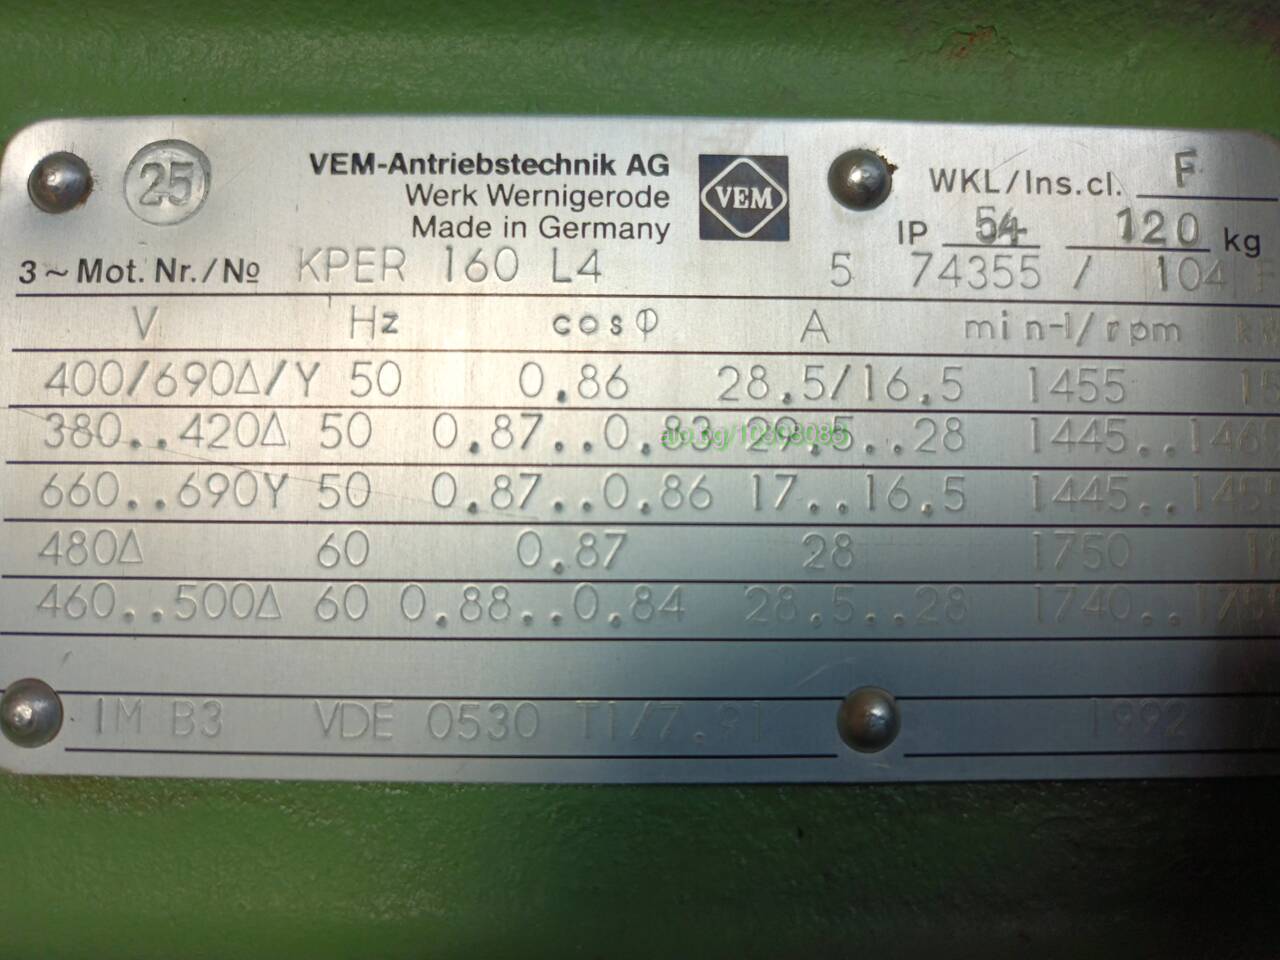 25
VEM-Antriebstechnik AG
Werk Wernigerode
Made in Germany
VEM
WKL/Ins.cl. F
IP 54 120 kg
3~Mot. Nr./№ KPER 160 L4 5 74355 / 104
V Hz cosφ A min-1/rpm
400/690Δ/Y 50 0.86 28.5/16.5 1455 15
380..420Δ 50 0.87..0.83 29.5..28 1445..146
660..690Y 50 0.87..0.86 17..16.5 1445..145
480Δ 60 0.87 28 1750 18
460..500Δ 60 0.88..0.84 28.5..28 1740..175
IM B3 VDE 0530 T1/7.91 1992